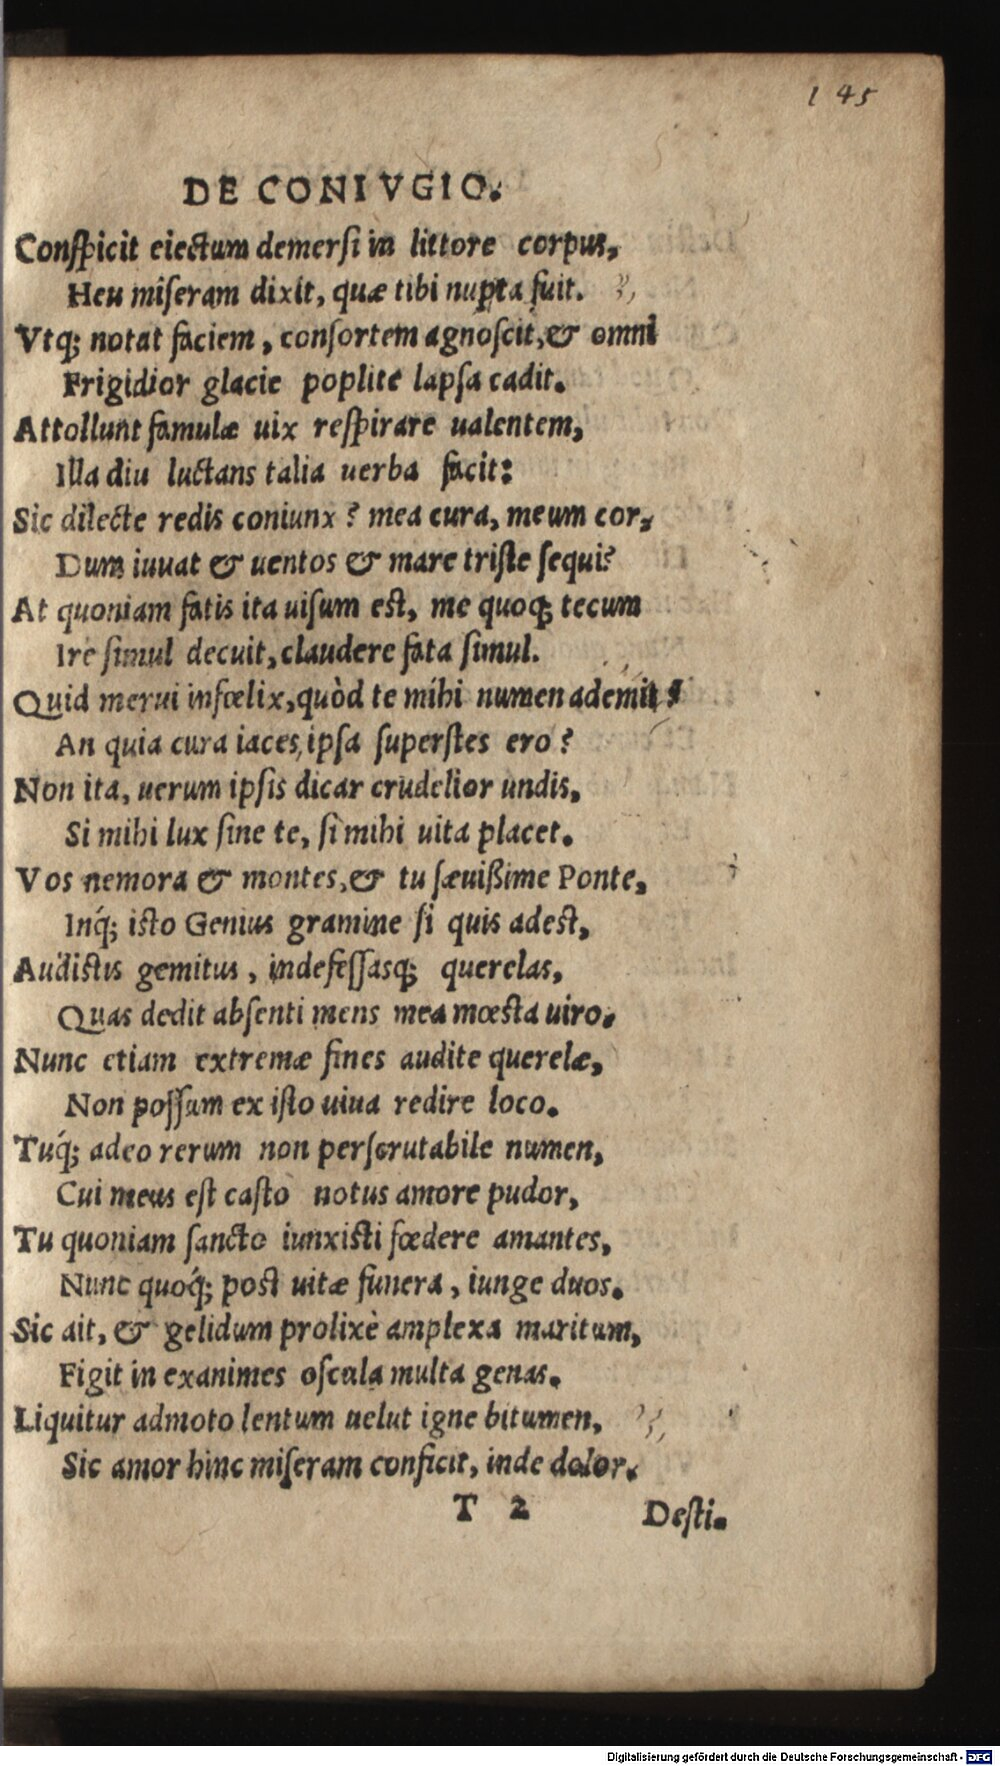 145
DE CONIVGIO.
Conſpicit eiectum demerſi in littore corpus,
Heu miſeram dixit, quæ tibi nupta fuit.
Vtq; notat faciem, conſortem agnoſcit, & omni
Frigidior glacie poplite lapſa cadit.
Attollunt famulæ uix reſpirare ualentem,
Illa diu luctans talia uerba facit:
Sic dilecte redis coniunx? mea cura, meum cor,
Dum iuuat & uentos & mare triſte ſequi?
At quoniam fatis ita uiſum eſt, me quoq; tecum
Ire ſimul decuit, claudere fata ſimul.
Quid merui infœlix, quòd te mihi numen ademit?
An quia cura iaces, ipſa ſuperſtes ero?
Non ita, uerum ipſis dicar crudelior undis,
Si mihi lux ſine te, ſi mihi uita placet.
Vos nemora & montes, & tu ſæuißime Ponte,
Inq́; iſto Genius gramine ſi quis adeſt,
Audiſtis gemitus, indefeſſasq; querelas,
Quas dedit abſenti mens mea mœſta uiro.
Nunc etiam extremæ fines audite querelæ,
Non poſſum ex iſto uiua redire loco.
Tuq́; adeo rerum non perſcrutabile numen,
Cui meus eſt caſto notus amore pudor,
Tu quoniam ſancto iunxiſti fœdere amantes,
Nunc quoq́; poſt uitæ funera, iunge duos.
Sic ait, & gelidum prolixè amplexa maritum,
Figit in exanimes oſcula multa genas.
Liquitur admoto lentum uelut igne bitumen,
Sic amor hinc miſeram conficit, inde dolor.
T 2 Deſti.
Digitalisierung gefördert durch die Deutsche Forschungsgemeinschaft - DFG